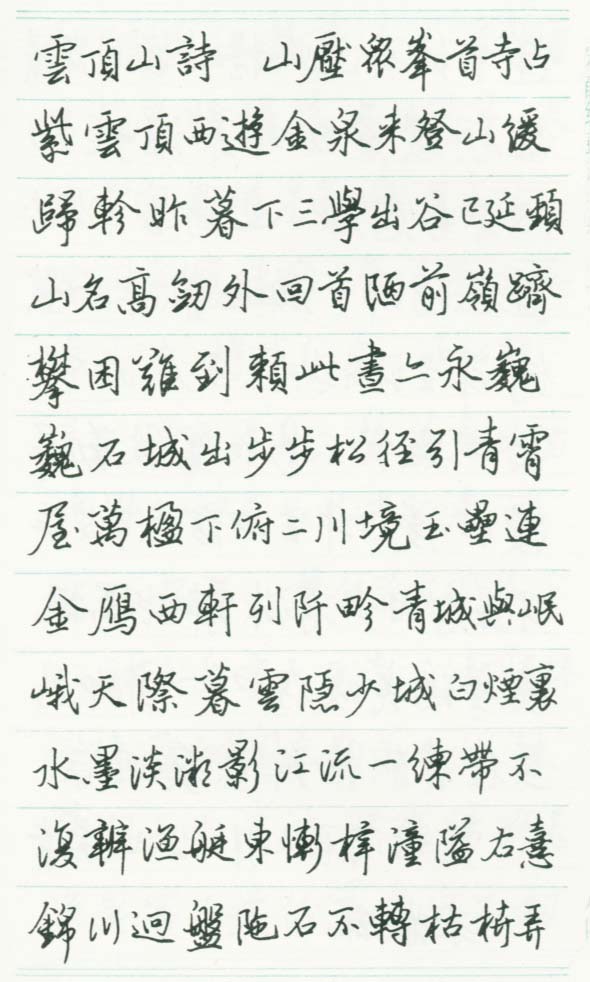 雲頂山詩 山壓眾峯首寺占
紫雲頂西遊金泉来登山緩
歸軫昨暮下三學出谷已延頸
山名髙劒外回首陋前嶺躋
攀困難到賴此晝亠永巍
巍石城出步步松徑引青霄
屋萬楹下俯二川境玉壘連
金鴈西軒列阡畛青城與岷
峨天際暮雲隱少城白煙裏
水墨淡潮影江流一練帶不
復辨漁艇東慚梓潼隘右
錦川迴盤陁石不轉枯椅弄